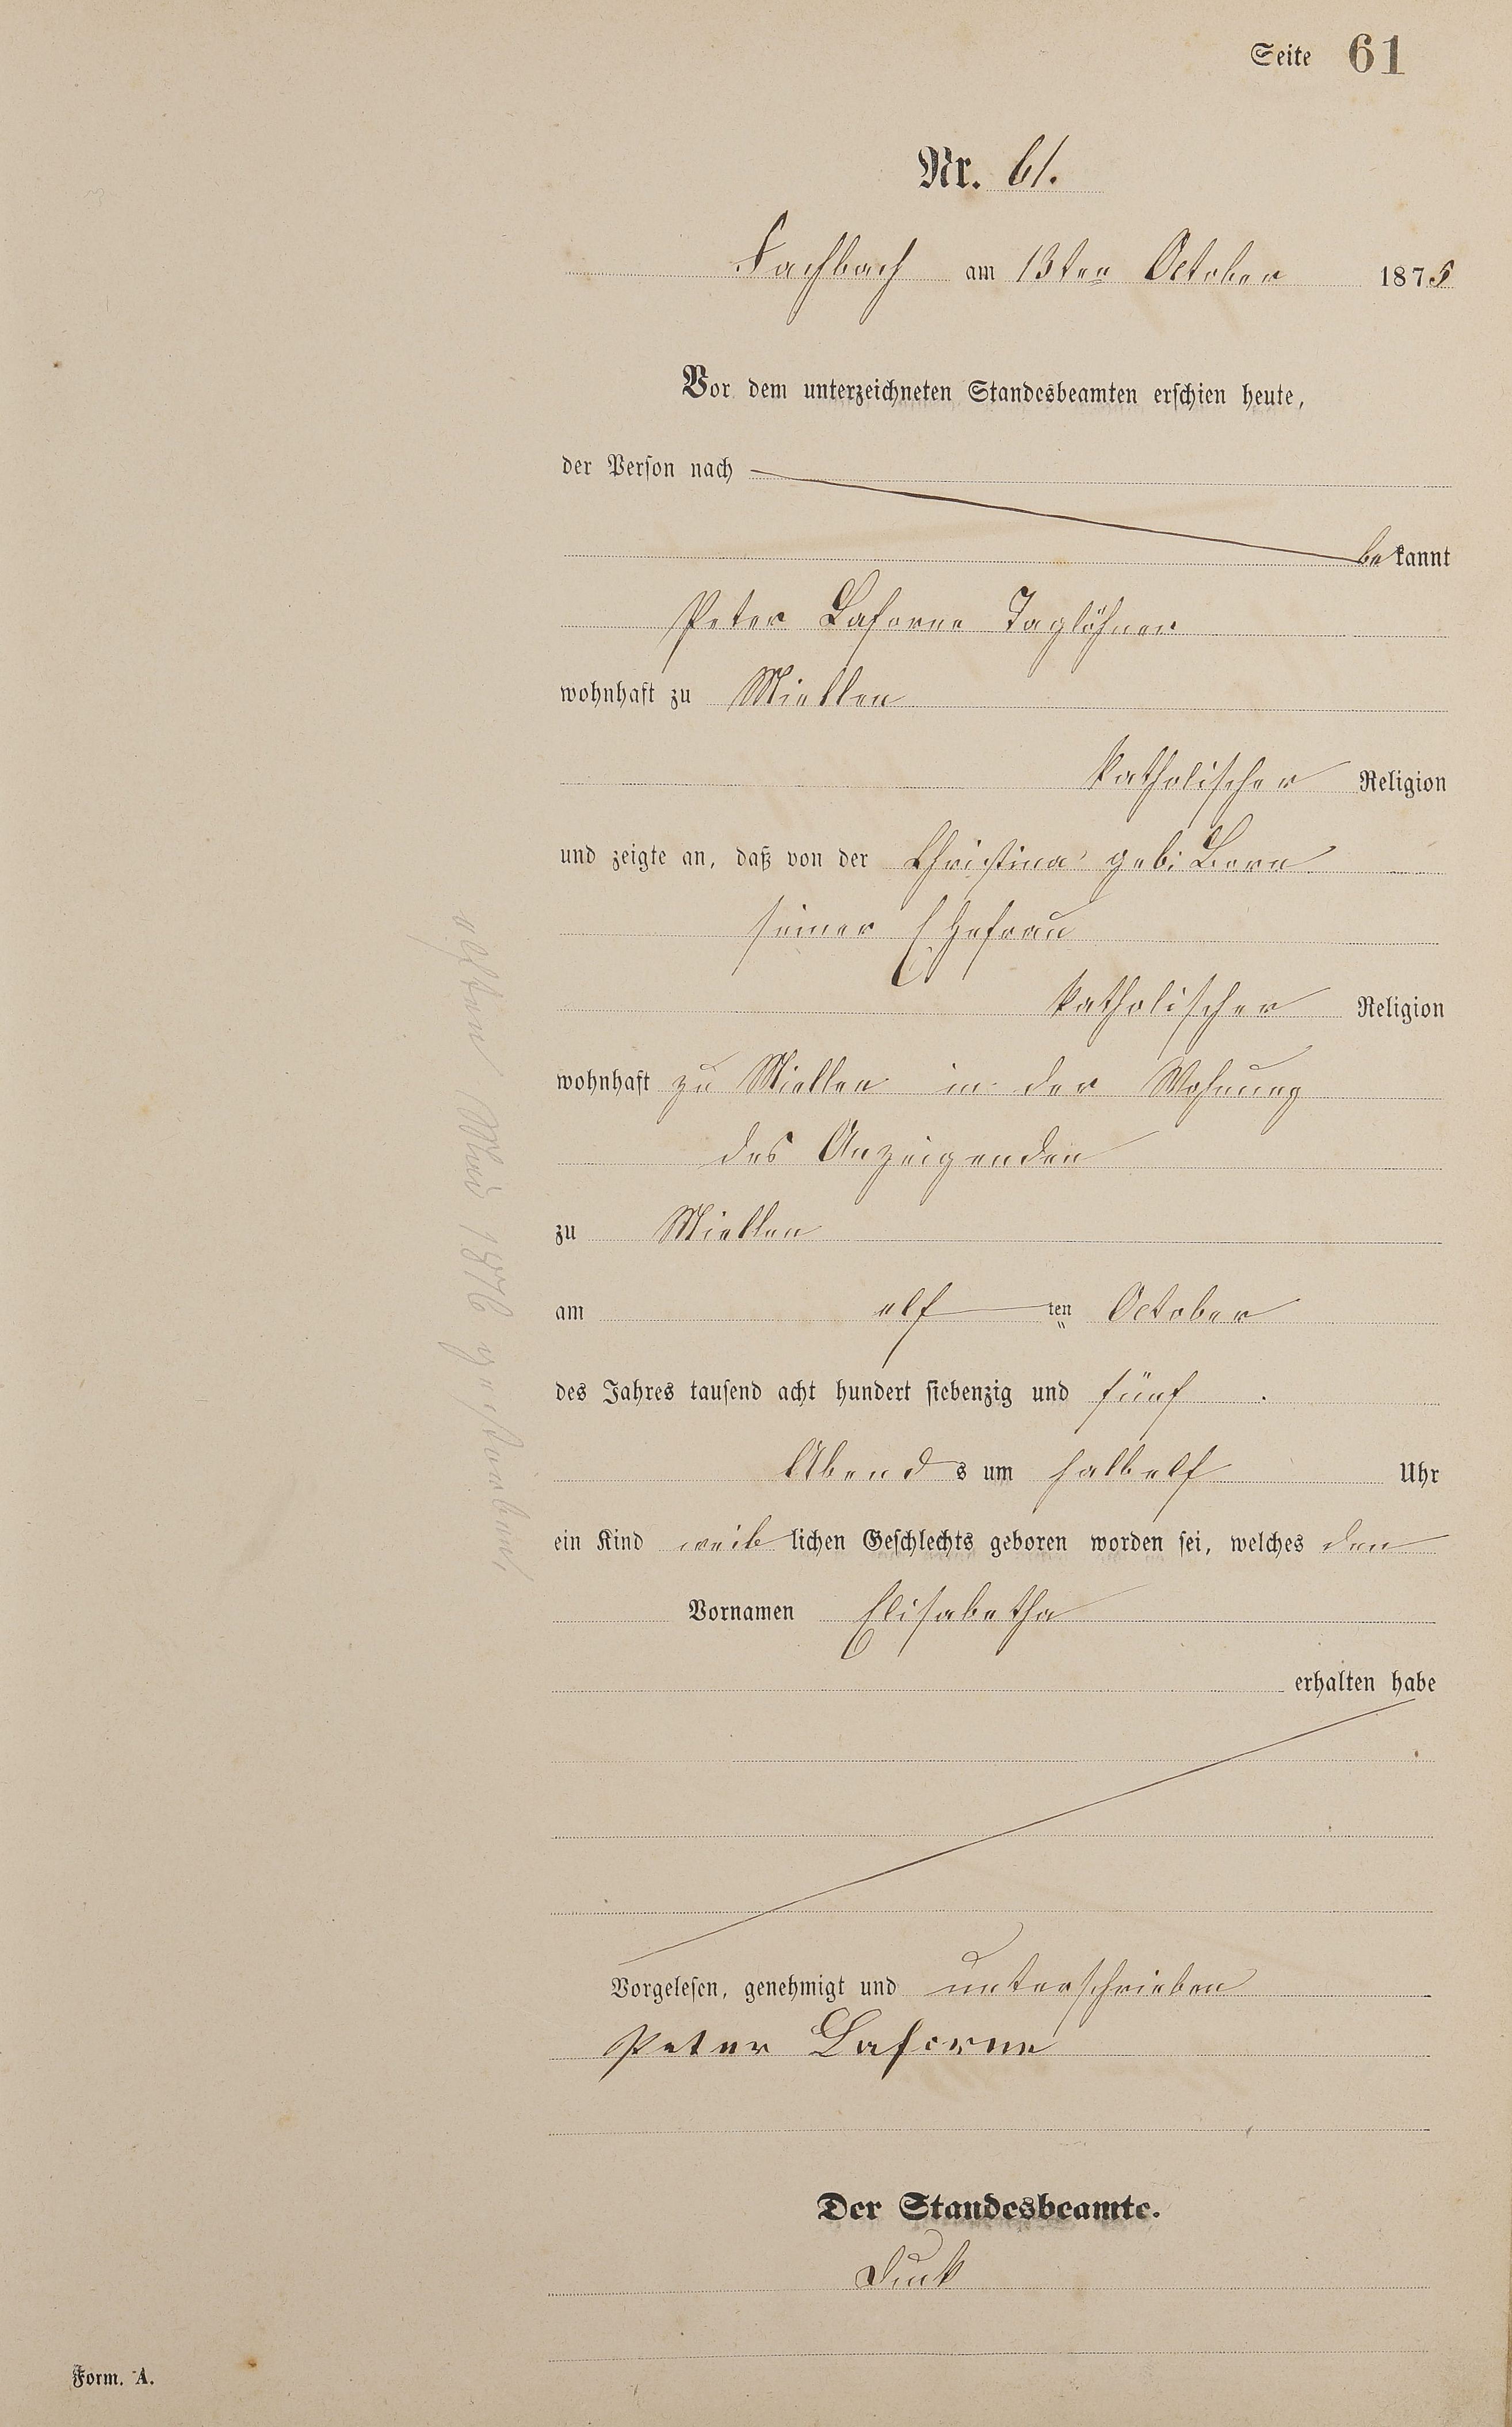 Seite 61
Nr. 61.
Fachbach am 13ten October 1875
Vor dem unterzeichneten Standesbeamten erschien heute,
der Person nach
bekannt
Peter Laforne Taglöhner
wohnhaft zu Miellen
katholischer Religion
und zeigte an, daß von der Christina geb: Born
seiner Ehefrau
katholischer Religion
wohnhaft zu Miellen in der Wohnung
des Anzeigenden
zu Miellen
am elf ten October
des Jahres tausend acht hundert siebenzig und fünf.
Abends um halb elf Uhr
ein Kind weiblichen Geschlechts geboren worden sei, welches den
Vornamen Elisabetha
erhalten habe
Vorgelesen, genehmigt und unterschrieben
Peter Laforne
Der Standesbeamte.
Form. A.
1876 gestorben